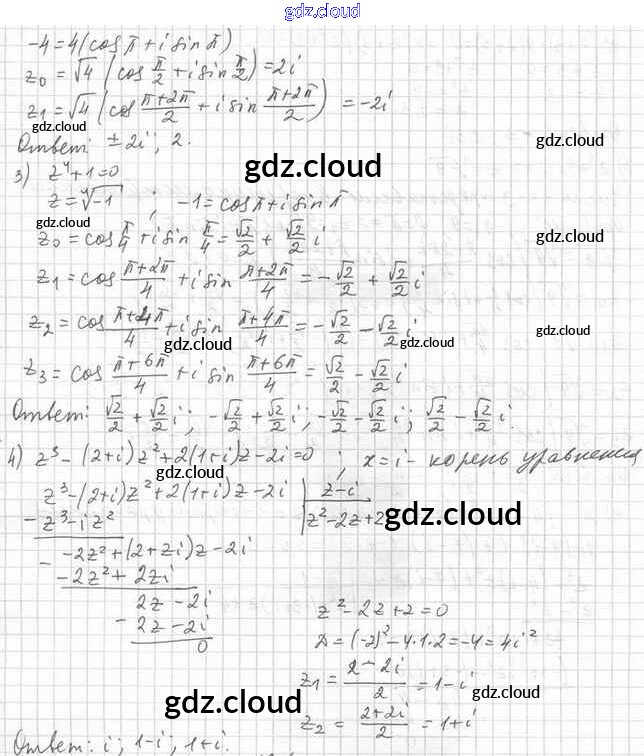 gdz.cloud
-4=4(cos π+i sin π)
z₀ = √4 (cos π/2 + i sin π/2) = 2i
z₁ = √4 (cos (π+2π)/2 + i sin (π+2π)/2) = -2i
gdz.cloud
gdz.cloud
Ответ: ± 2i; 2.
gdz.cloud
3) z⁴+1=0
z = ⁴√-1 ; -1 = cos π + i sin π
gdz.cloud
z₀ = cos π/4 + i sin π/4 = √2/2 + √2/2 i
gdz.cloud
z₁ = cos (π+2π)/4 + i sin (π+2π)/4 = -√2/2 + √2/2 i
z₂ = cos (π+4π)/4 + i sin (π+4π)/4 = -√2/2 - √2/2 i
gdz.cloud
gdz.cloud
gdz.cloud
z₃ = cos (π+6π)/4 + i sin (π+6π)/4 = √2/2 - √2/2 i
Ответ: √2/2 + √2/2 i; -√2/2 + √2/2 i; -√2/2 - √2/2 i; √2/2 - √2/2 i.
4) z³-(2+i)z²+2(1+i)z-2i=0 ; x=i - корень уравнения
gdz.cloud
z³-(2+i)z²+2(1+i)z-2i | z-i
- z³-iz² | z²-2z+2
gdz.cloud
- -2z²+(2+2i)z-2i
-2z²+2zi
2z-2i
- 2z-2i
0
z²-2z+2=0
Д=(-2)²-4·1·2=-4=4i²
z₁ = (2-2i)/2 = 1-i
gdz.cloud
gdz.cloud
z₂ = (2+2i)/2 = 1+i
Ответ: i; 1-i; 1+i.